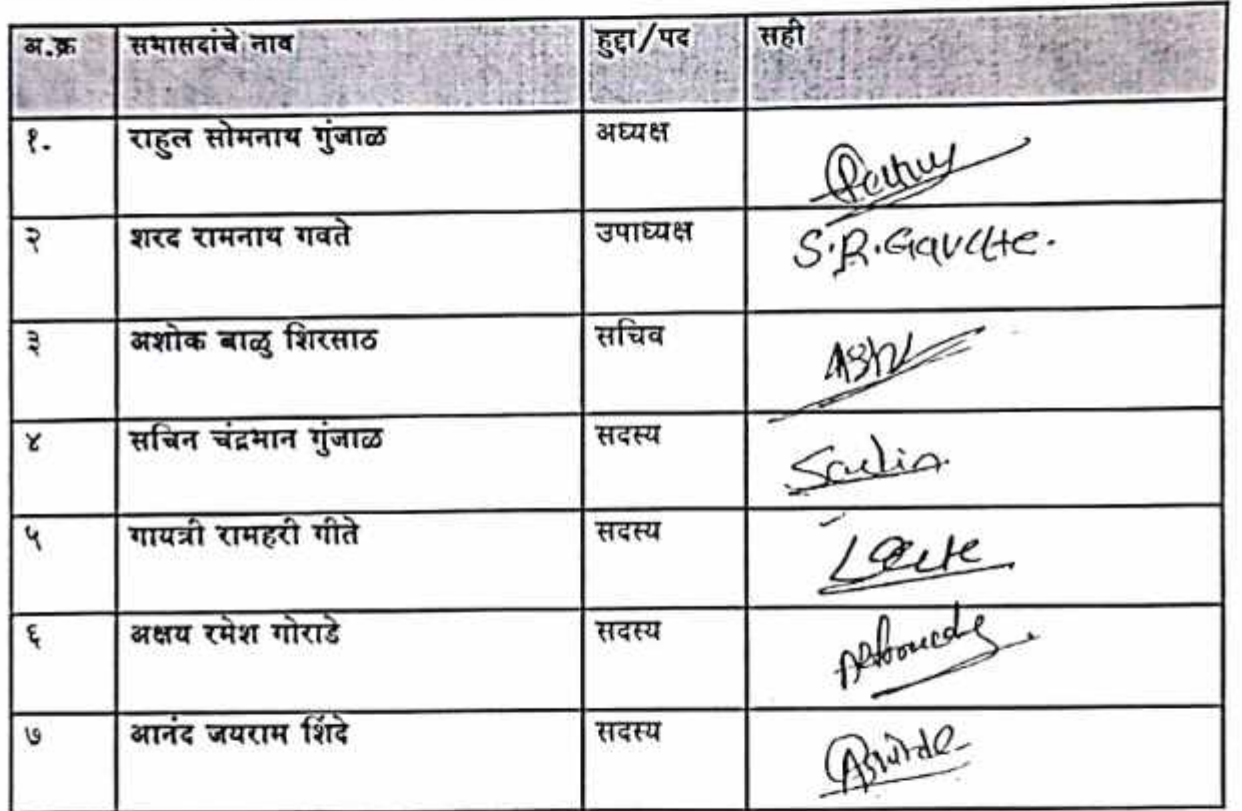 अ.क्र सभासदांचे नाव हुद्दा/पद सही
१. राहुल सोमनाथ गुंजाळ अध्यक्ष
२ शरद रामनाथ गवते उपाध्यक्ष S.R.Gavate.
३ अशोक बाळु शिरसाठ सचिव
४ सचिन चंद्रभान गुंजाळ सदस्य Sachin
५ गायत्री रामहरी गीते सदस्य
६ अक्षय रमेश गोराडे सदस्य
७ आनंद जयराम शिंदे सदस्य